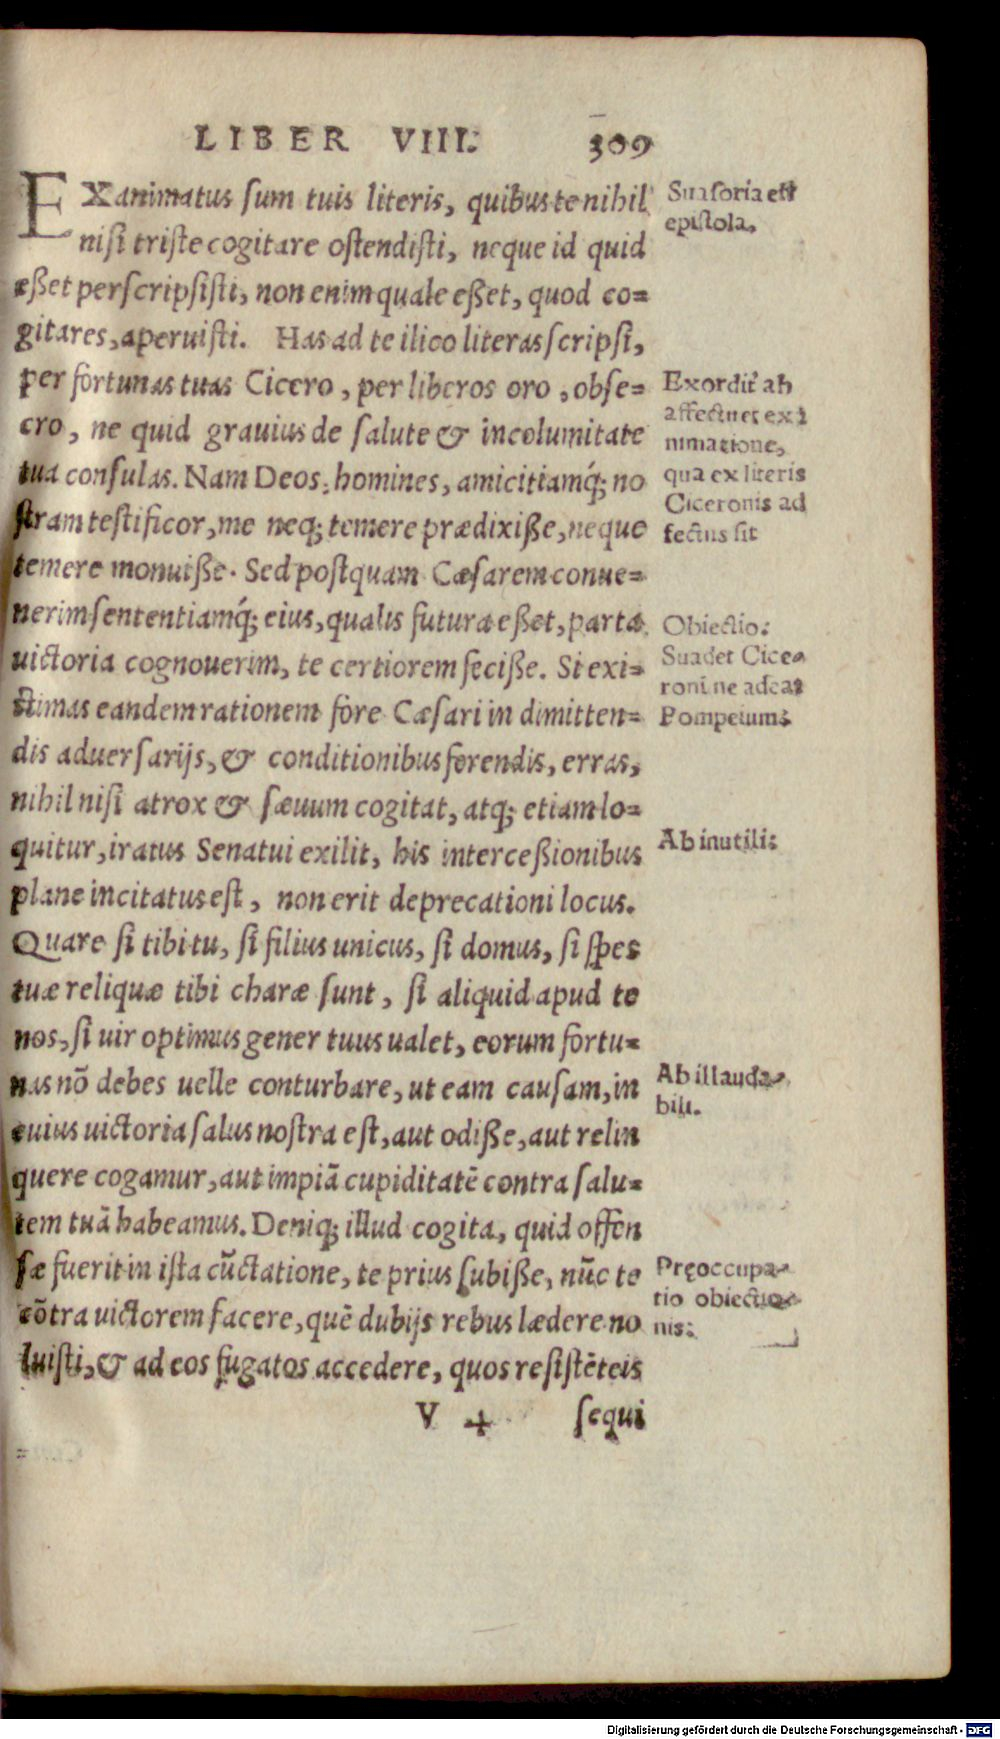 LIBER VIII. 309
EXanimatus sum tuis literis, quibus te nihil
nisi triste cogitare ostendisti, neque id quid
eßet perscripsisti, non enim quale eßet, quod co=
gitares, aperuisti. Has ad te ilico literas scripsi,
per fortunas tuas Cicero, per liberos oro, obse=
cro, ne quid grauius de salute & incolumitate
tua consulas. Nam Deos, homines, amicitiamq́; no
stram testificor, me neq; temere prædixiße, neque
temere monuiße. Sed postquam Cæsarem conue=
nerim sententiamq́; eius, qualis futura eßet, parta
uictoria cognouerim, te certiorem feciße. Si exi=
stimas eandem rationem fore Cæsari in dimitten=
dis aduersarijs, & conditionibus ferendis, erras,
nihil nisi atrox & sæuum cogitat, atq; etiam lo=
quitur, iratus Senatui exilit, his interceßionibus
plane incitatus est, non erit deprecationi locus.
Quare si tibi tu, si filius unicus, si domus, si spes
tuæ reliquæ tibi charæ sunt, si aliquid apud te
nos, si uir optimus gener tuus ualet, eorum fortu=
nas nō debes uelle conturbare, ut eam causam, in
cuius uictoria salus nostra est, aut odiße, aut relin
quere cogamur, aut impiā cupiditatē contra salu=
tem tuā habeamus. Deniq; illud cogita, quid offen
sæ fuerit in ista cūctatione, te prius subiße, nūc te
cōtra uictorem facere, quē dubijs rebus lædere no
luisti, & ad eos fugatos accedere, quos resistēteis
V 4 sequi
Suasoria est
epistola.
Exordit' ab
affectu et exa
nimatione,
qua ex literis
Ciceronis ad
fectus sit
Obiectio.
Suadet Cice=
roni ne adeat
Pompeium.
Ab inutili:
Ab illauda=
bili.
Pręoccupa=
tio obiectio=
nis:
Digitalisierung gefördert durch die Deutsche Forschungsgemeinschaft - DFG